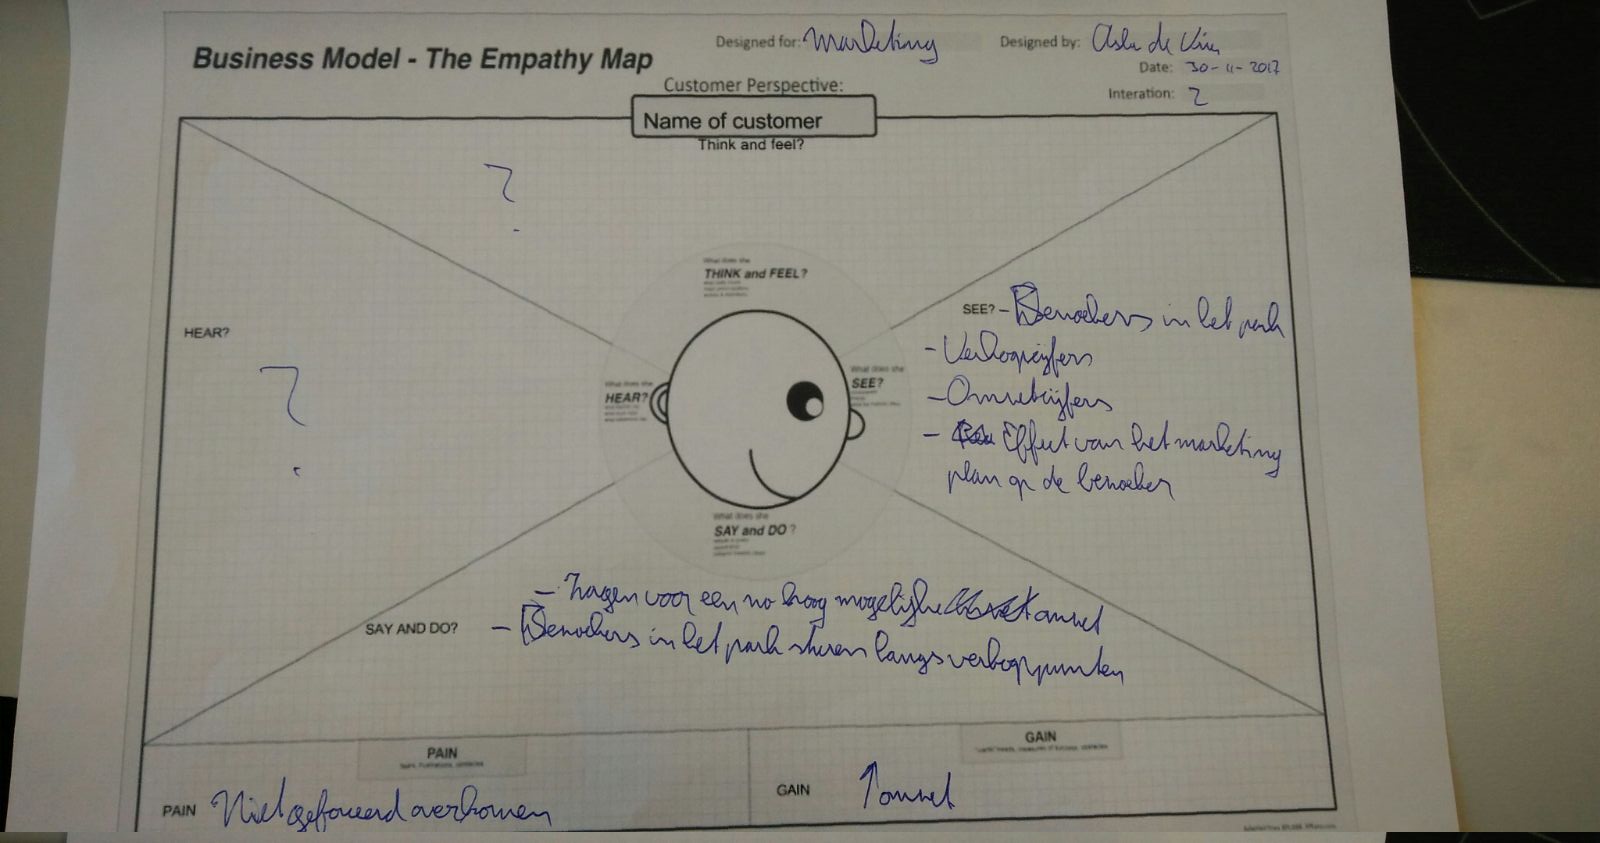 Business Model - The Empathy Map
Designed for: Marketing
Designed by: de
Date: 30-11-2017
Interation: 2
Customer Perspective:
Name of customer
Think and feel?
?
What does she
THINK and FEEL?
HEAR?
?
What does she
HEAR?
What does she
SEE?
SEE? - Bezoekers in het park
- Verkoopcijfers
- Omzetcijfers
- Effect van het marketing
plan op de bezoeker
What does she
SAY and DO?
SAY AND DO?
- Zorgen voor een zo hoog mogelijke omzet
- Bezoekers in het park sturen langs verkooppunten
PAIN
GAIN
PAIN Niet geforceerd overkomen
GAIN ↑ omzet